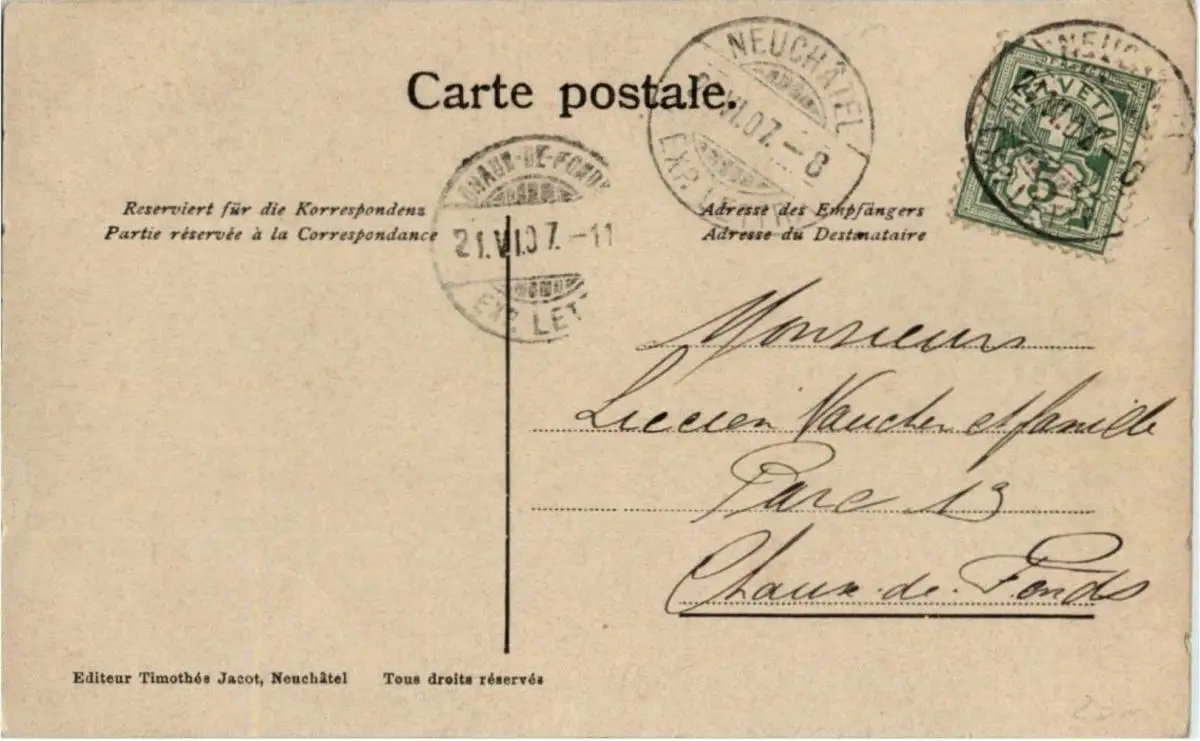 Carte postale.
NEUCHÂTEL
VI.07.-8
EXP. LETTR
NEUCHÂTEL
21.VI.07.-8
HELVETIA
5
CHAUX-DE-FONDS
21.VI.07.-11
EXP. LET
Reserviert für die Korrespondenz
Partie réservée à la Correspondance
Adresse des Empfängers
Adresse du Destinataire
Monsieur
Lucien Vaucher et famille
Parc 13
Chaux-de-Fonds
Editeur Timothée Jacot, Neuchâtel Tous droits réservés